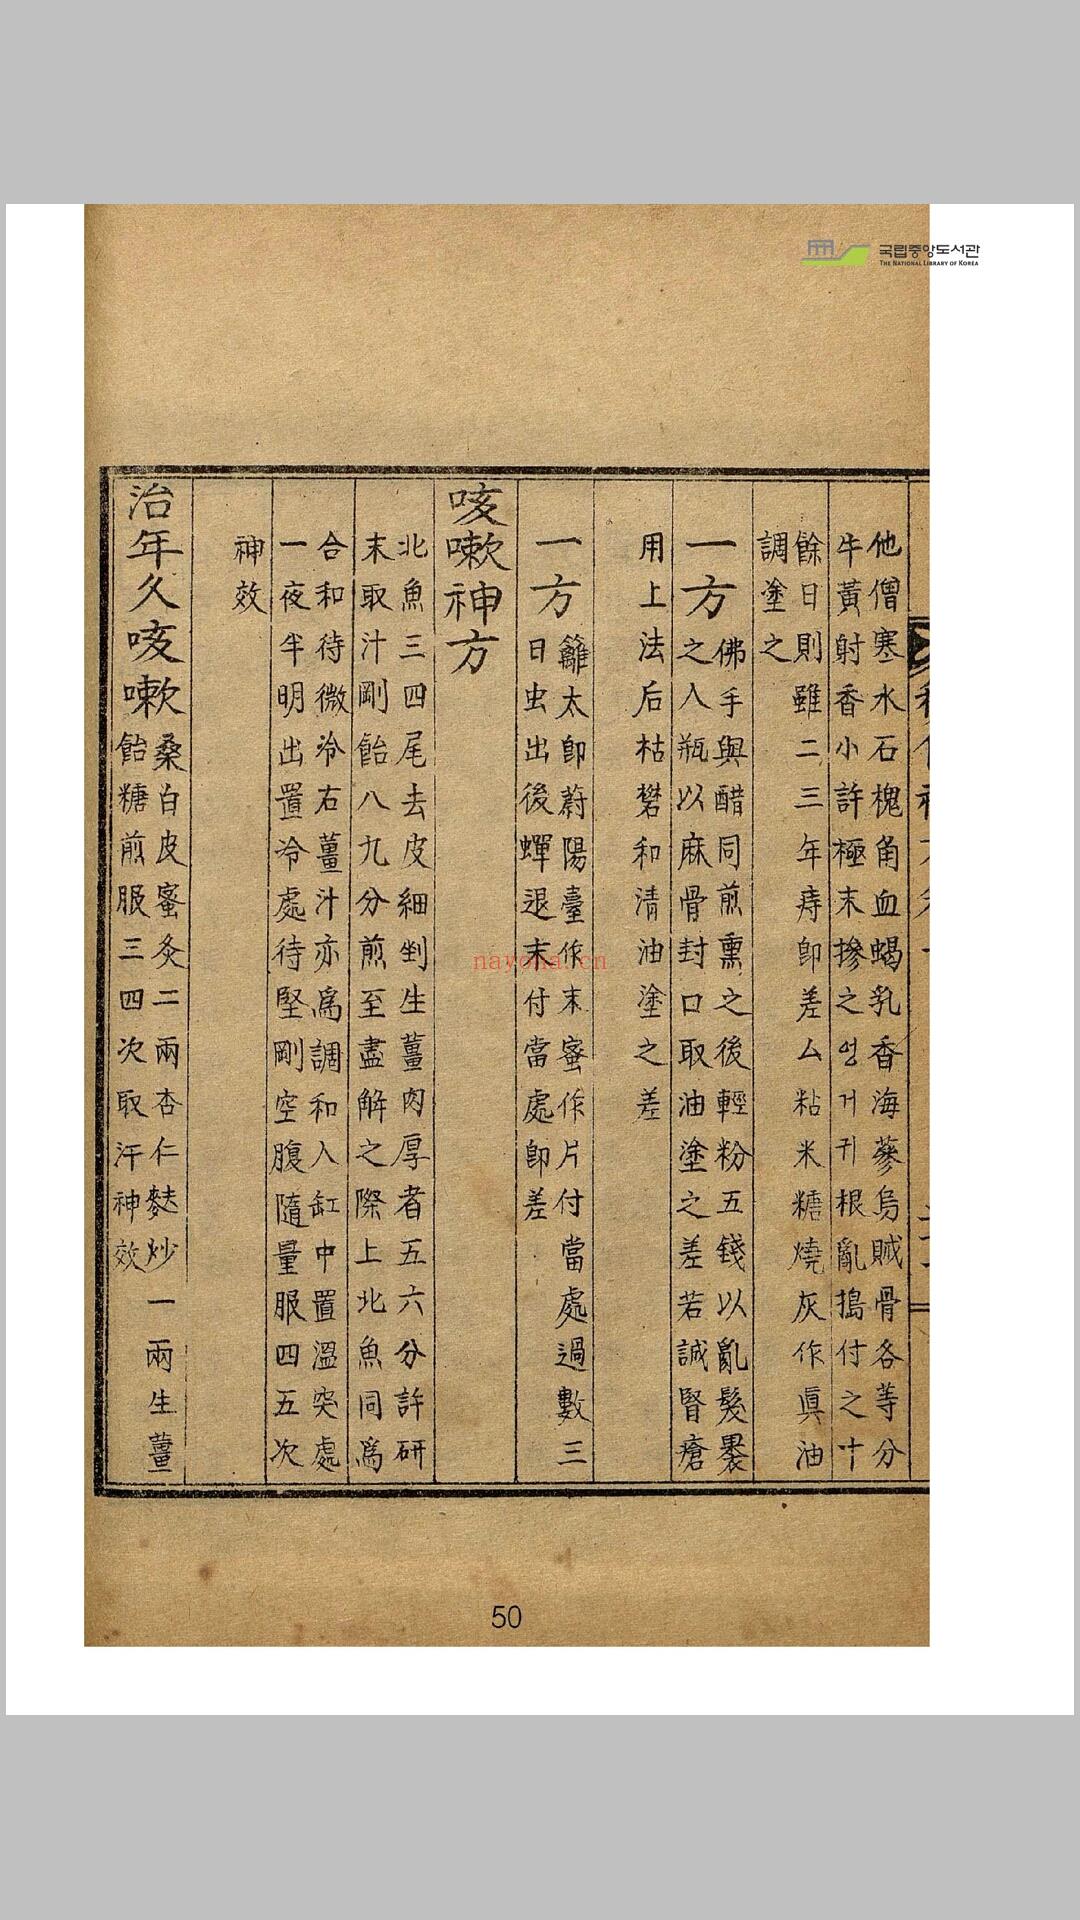 국립중앙도서관
THE NATIONAL LIBRARY OF KOREA
他僧寒水石槐角血蝎乳香海蔘烏賊骨各等分
牛黃射香小許極末摻之엉거귀根亂搗付之十
餘日則雖二三年痔卽差厶粘米糖燒灰作眞油
調塗之
一方
佛手與醋同煎熏之後輕粉五錢以亂髮褁
之入瓶以麻骨封口取油塗之差若誠腎瘡
用上法后枯礬和清油塗之差
一方
籬太卽蔚陽臺作末蜜作片付當處過數三
日虫出後蟬退末付當處卽差
咳嗽神方
北魚三四尾去皮細剉生薑肉厚者五六分許研
末取汁剛飴八九分煎至盡解之際上北魚同爲
合和待微冷右薑汁亦爲調和入缸中置溫突處
一夜半明出置冷處待堅剛空腹隨量服四五次
神效
治年久咳嗽
桑白皮蜜灸二兩杏仁麩炒一兩生薑
飴糖煎服三四次取汗神效
nayona.cn
50